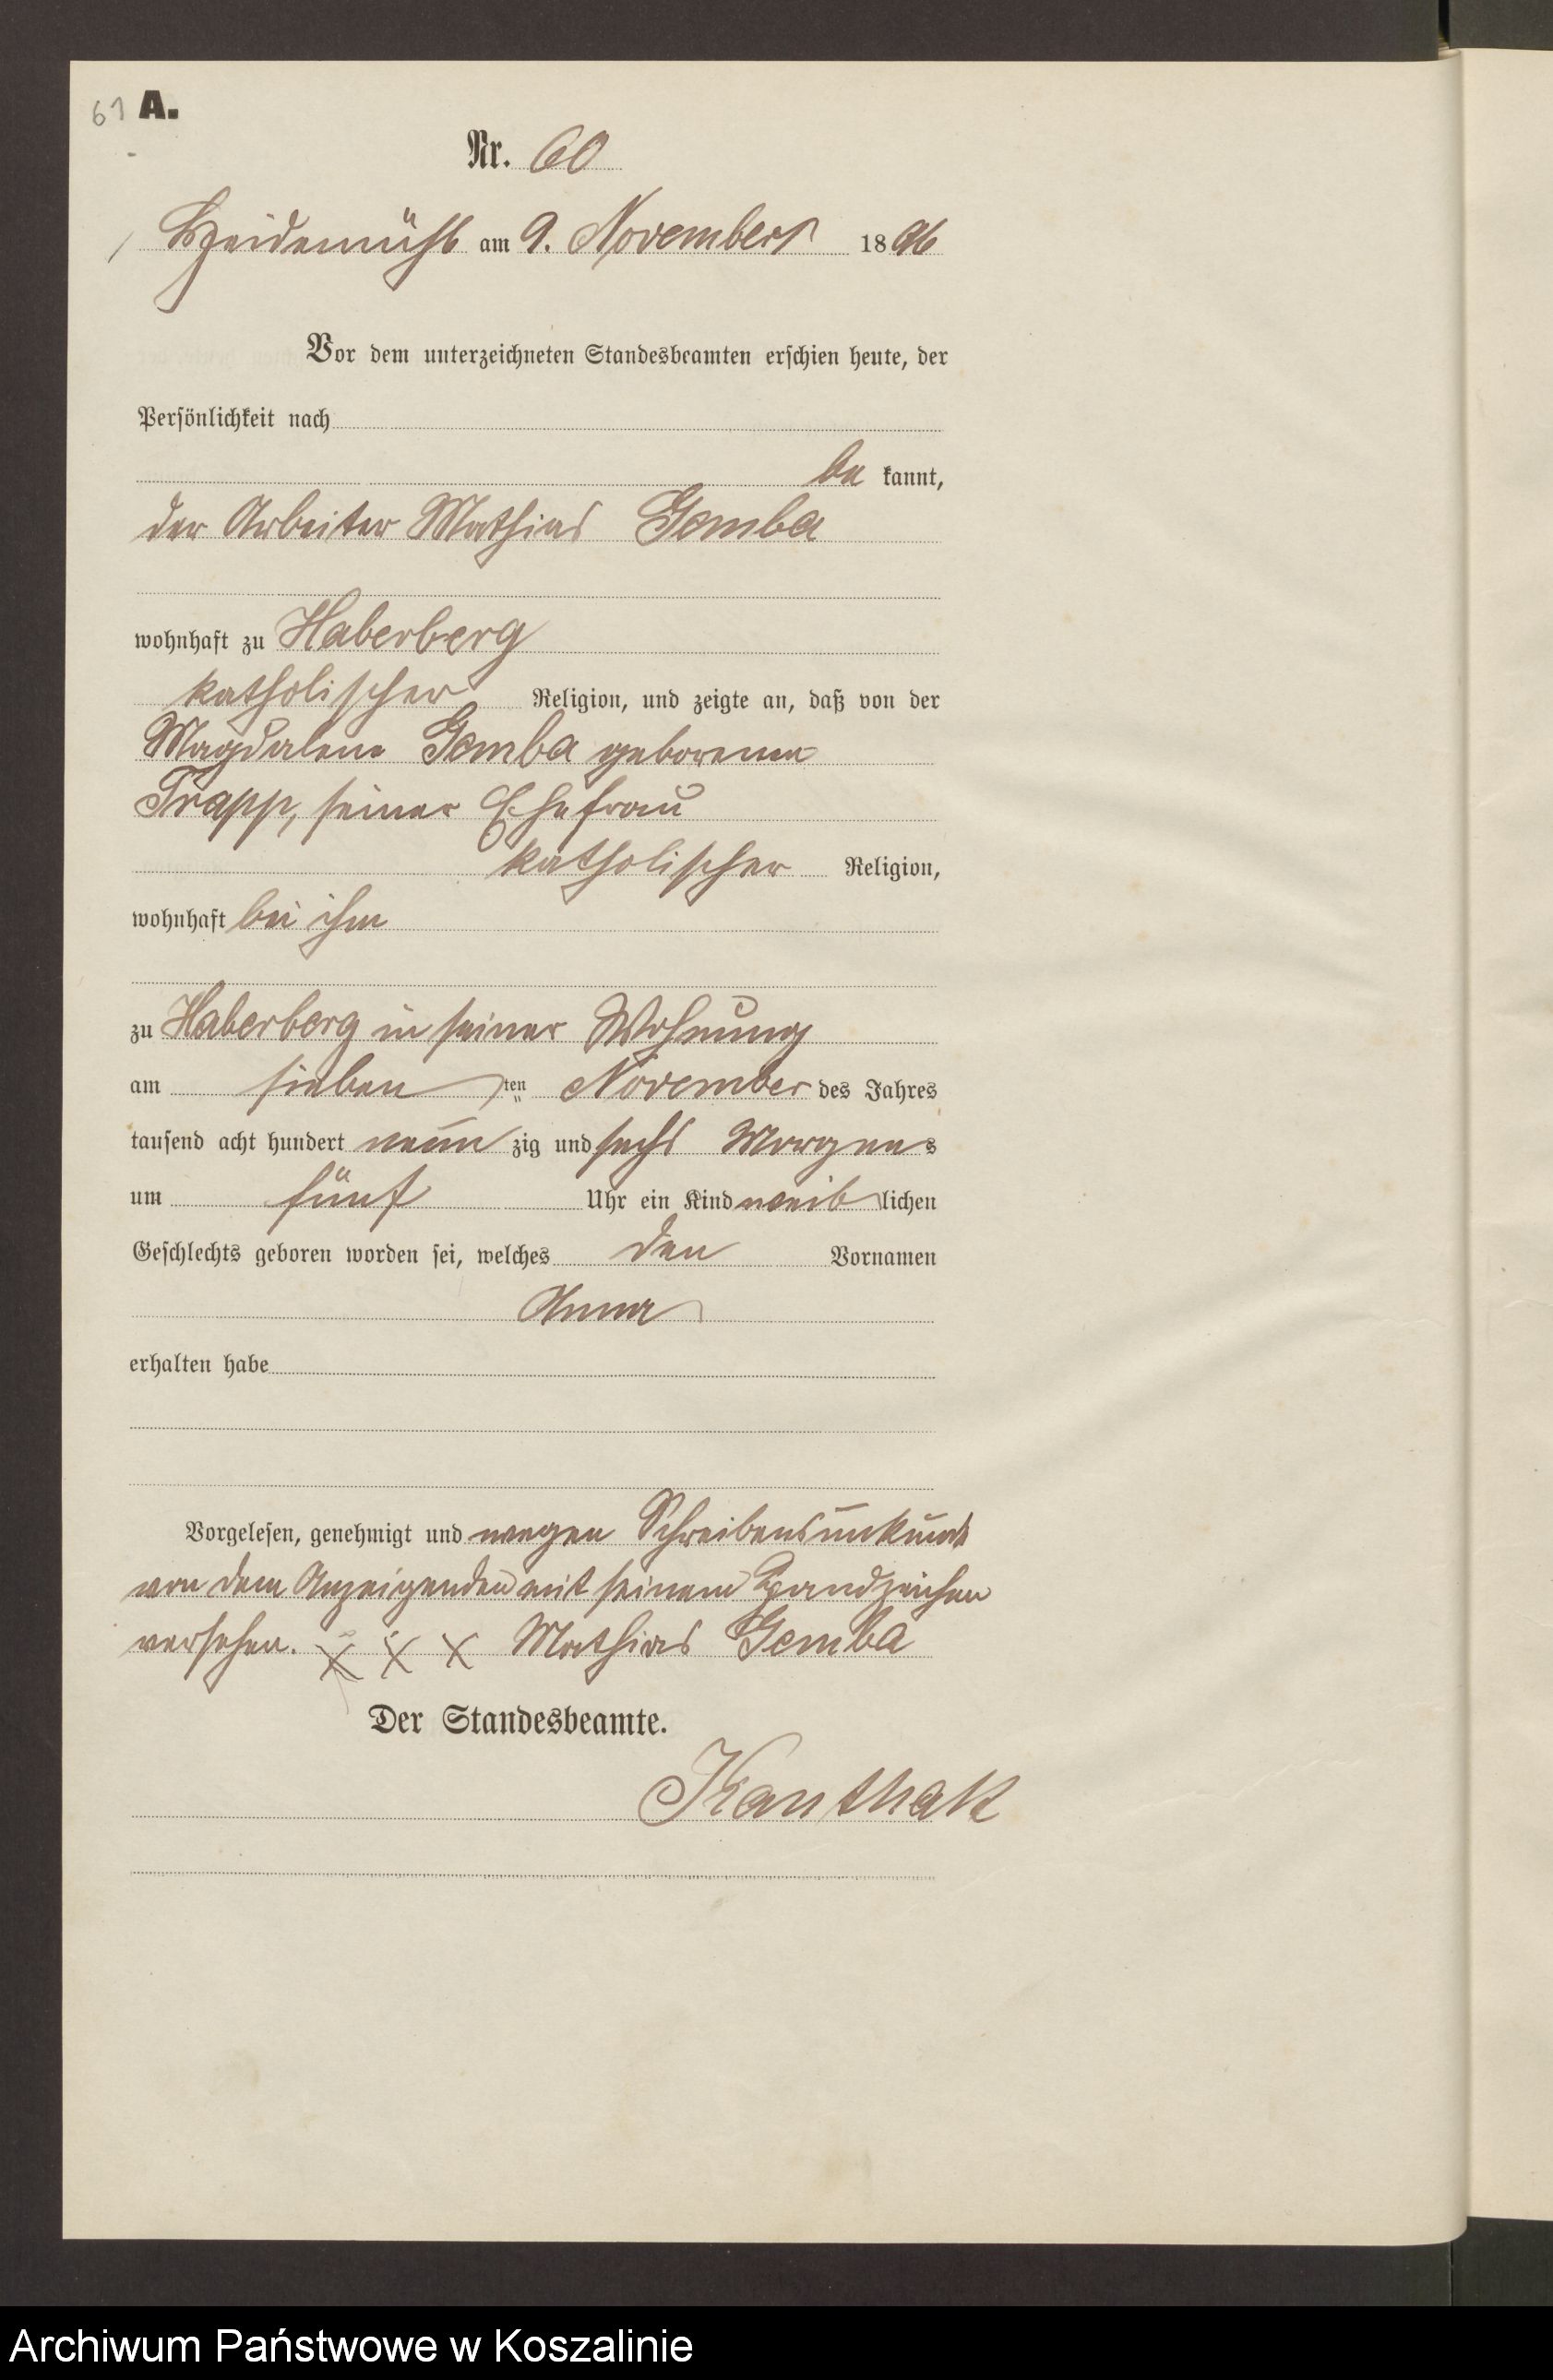 61 A.
Nr. 60
Heidemühl am 9. November 1896
Vor dem unterzeichneten Standesbeamten erschien heute, der
Persönlichkeit nach
be kannt,
der Arbeiter Mathias Gemba
wohnhaft zu Haberberg
katholischer Religion, und zeigte an, daß von der
Magdalene Gemba geborenen
Trapp, seiner Ehefrau
katholischer Religion,
wohnhaft bei ihm
zu Haberberg in seiner Wohnung
am sieben ten November des Jahres
tausend acht hundert neun zig und sechs Morgens
um fünf Uhr ein Kind weib lichen
Geschlechts geboren worden sei, welches den Vornamen
Anna
erhalten habe
Vorgelesen, genehmigt und wegen Schreibensunkunde
von dem Anzeigenden mit seinem Handzeichen
versehen. X X X Mathias Gemba
Der Standesbeamte.
Kanthak
Archiwum Państwowe w Koszalinie